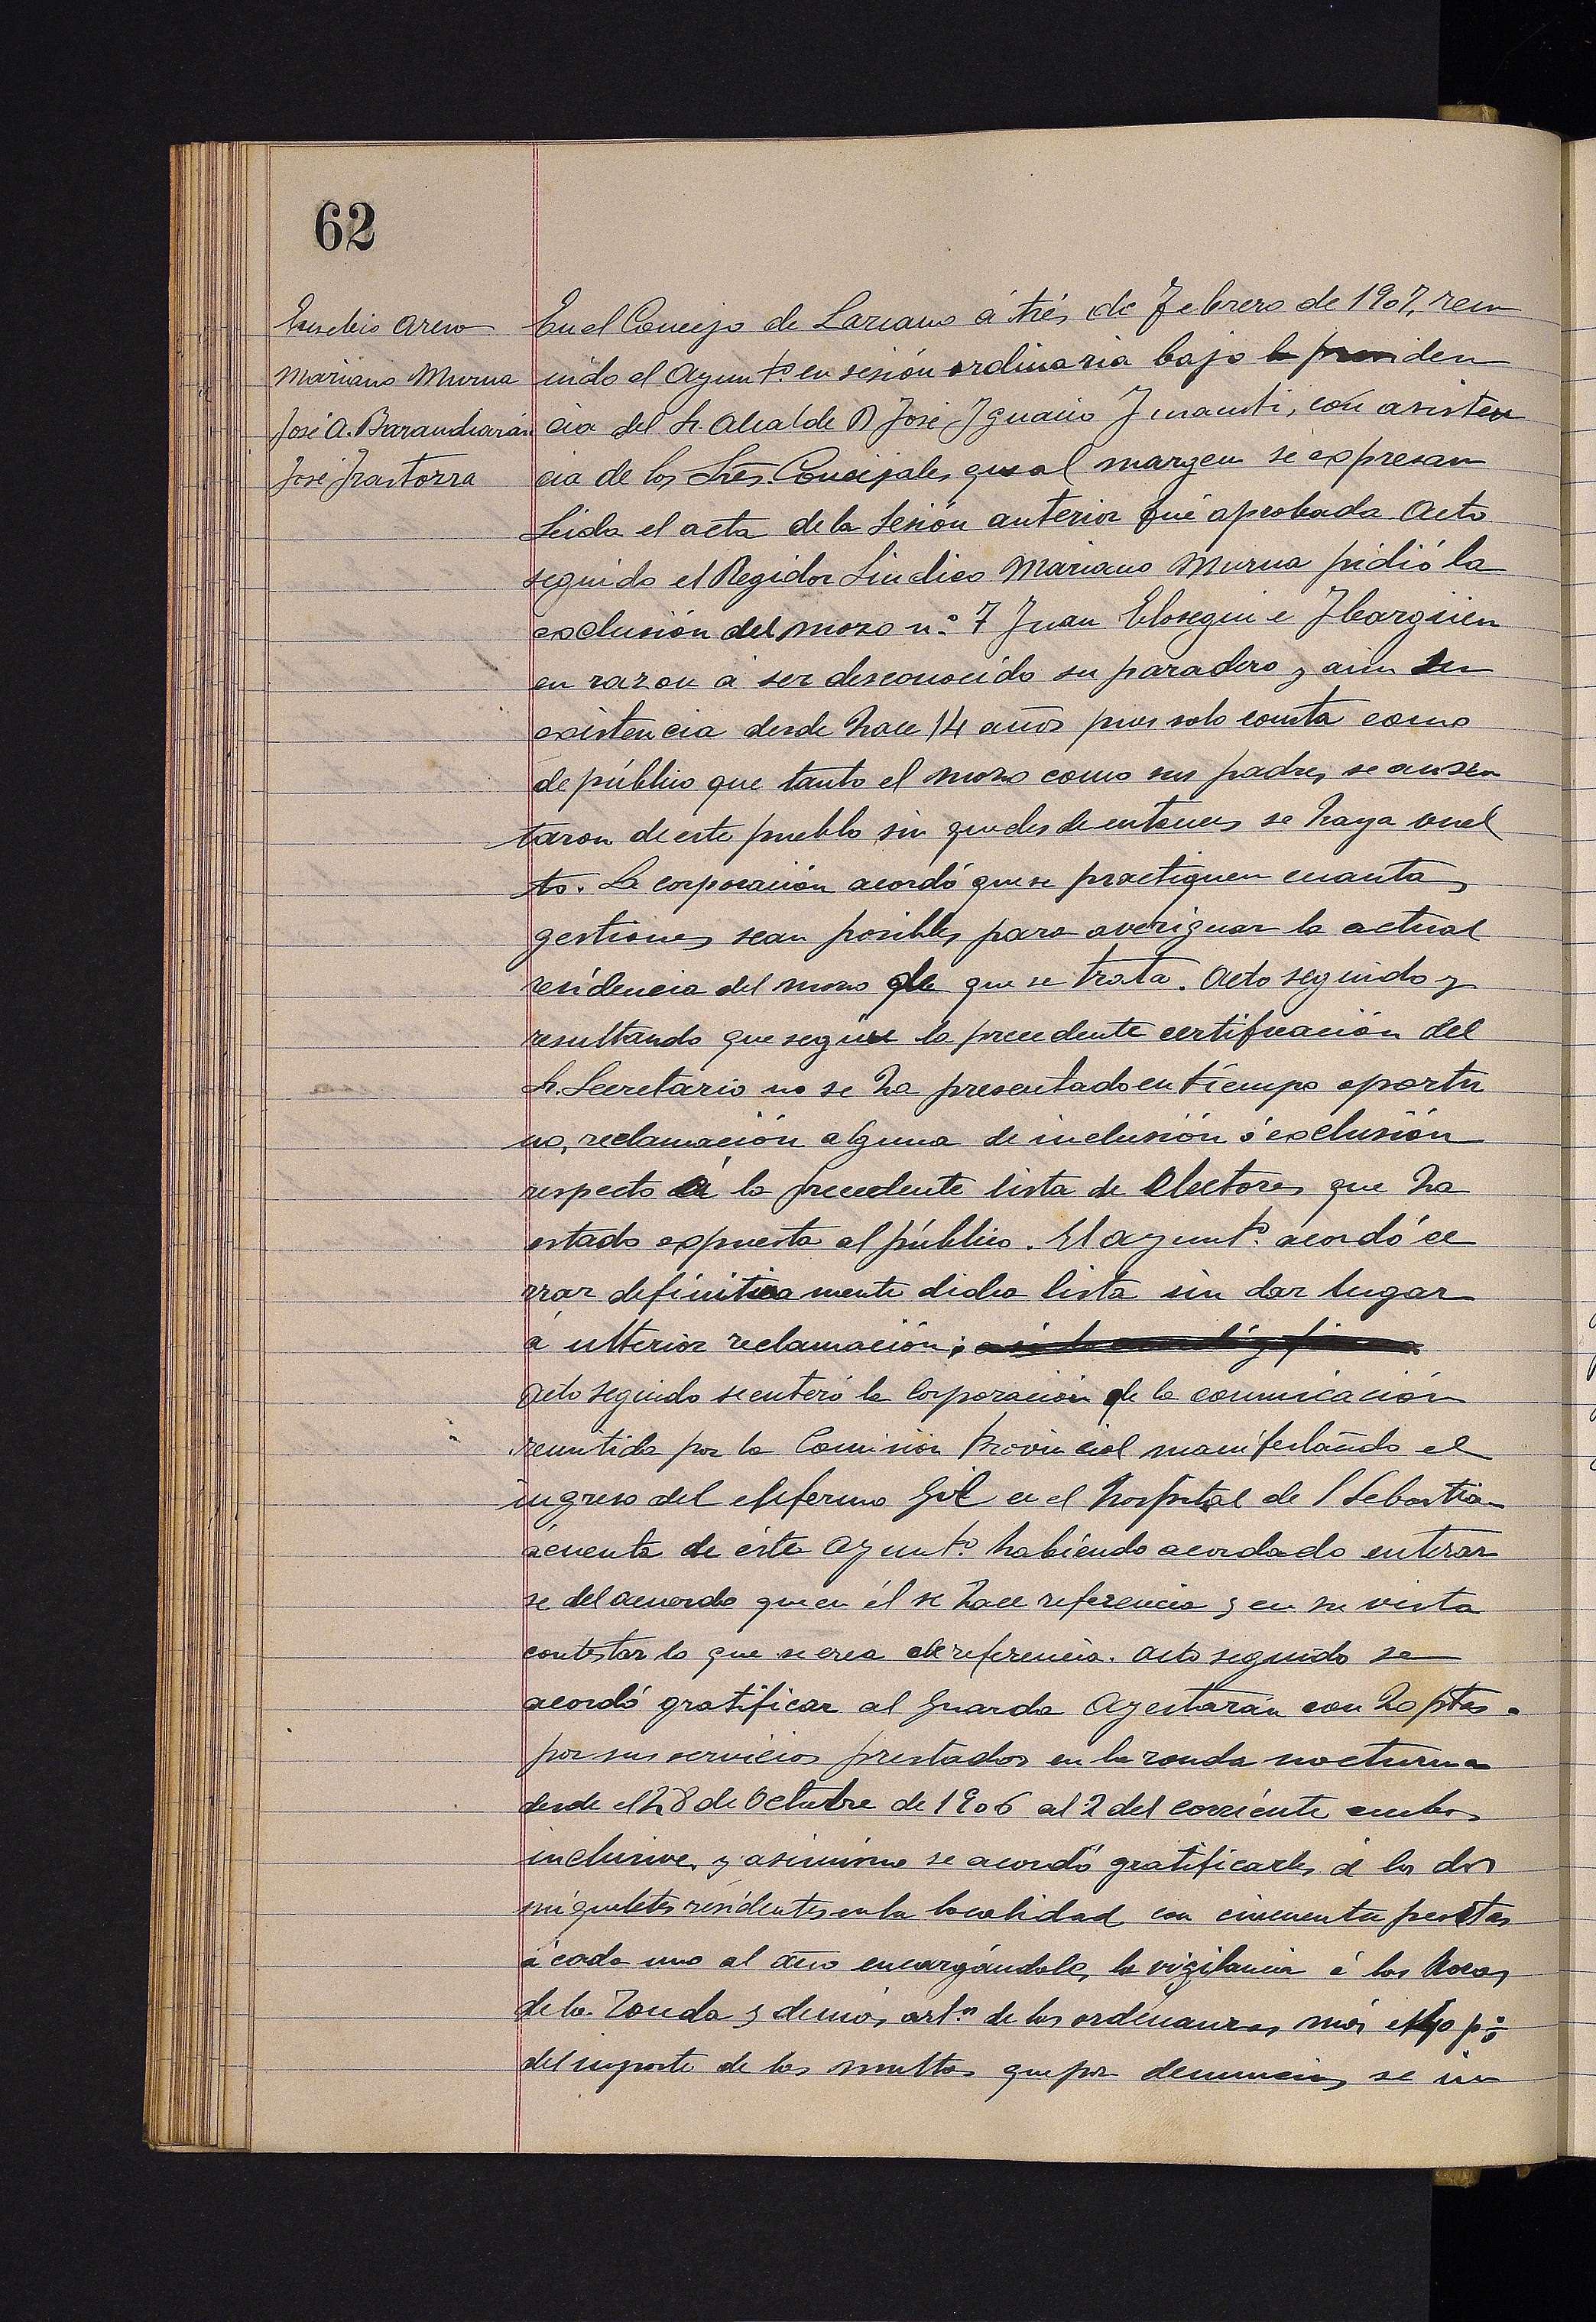 62
Eusebio Areso
Mariano Murua
José A. Barandiarán
José Irastorza
En el Concejo de Lazcano á trés de Febrero de 1907, reu
nido el Ayuntº. en sesión ordinaria bajo la presiden
cia del Sr. Alcalde D José Ignacio Imausti, con asisten
cia de los Srēs. Concejales que al margen se expresan
Leida el acta de la sesión anterior fué aprobada. Acto
seguido el Regidor Sindico Mariano Murua pidió la
exclusión del mozo n.º 7 Juan Elosegui e Ibargüen
en razon á ser desconocido su paradero y aun su
existencia desde hace 14 años pues solo consta como
de público que tanto el mozo como sus padres se ausen
taron de este pueblo sin que desde entonces se haya vuel
to. La corporación acordó que se practiquen cuantas
gestiones sean posibles para averiguar la actual
residencia del mozo de que se trata. Acto seguido y
resultando que según la precedente certificación del
Sr. Secretario no se ha presentado en tiempo oportu
no, reclamación alguna de inclusión ó exclusión
respecto á la precedente lista de electores que ha
estado expuesta al público. El ayuntº. acordó ce
rrar definitiva mente dicha lista sin dar lugar
á ulterior reclamación;
Acto seguido se enteró la Corporación de la comunicación
remitida por la Comisión Provincial manifestando el
ingreso del enfermo Gil en el hospital de S Sebastian
á cuenta de éste Ayuntº. habiendo acordado enterar
se del acuerdo que en él se hace referencia y en su vista
contestar lo que se crea de referencia. Acto seguido se
acordó gratificar al Guarda Ayestarán con 20 ptas.
por sus servicios prestados en la ronda nocturna
desde el 28 de Octubre de 1906 al 2 del corriente ambos
inclusive, y asimismo se acordó gratificarles á los dos
miqueletes residentes en la localidad con cincuenta pesetas
á cada uno al año encargándoles la vigilancia á las horas
de la ronda y demás art.os de las ordenanzas más el 40 p%
del importe de las multas que por denuncias se im